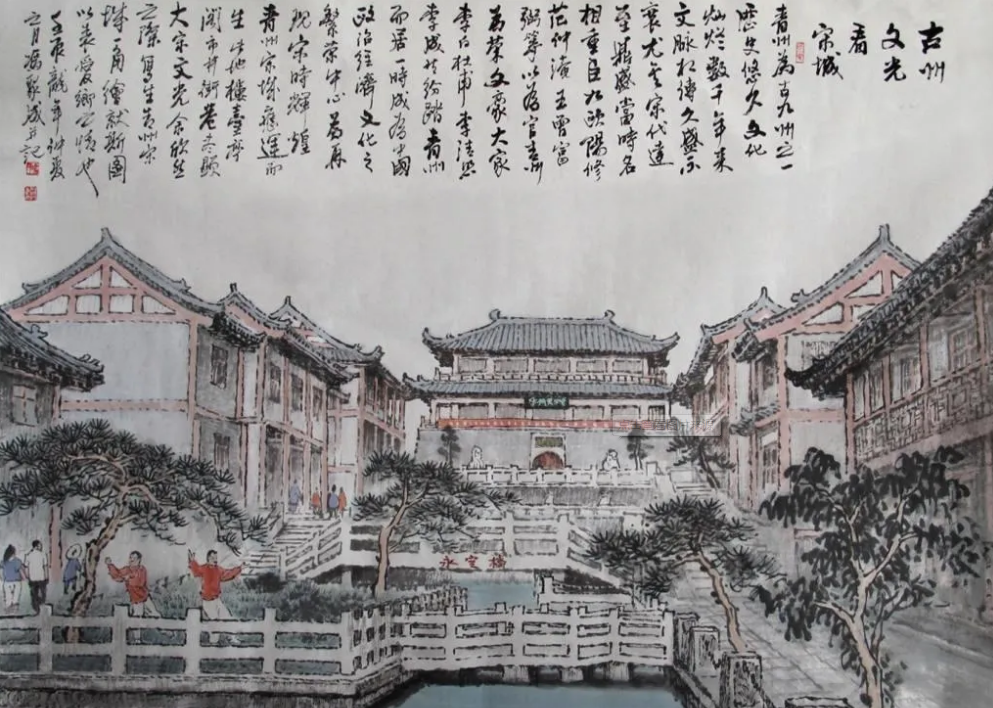 古州
文光
看
宋城
青州为古九州之一
历史悠久文化
灿烂数千年来
文脉相传久盛不
衰尤金宋代达
至鼎盛当时名
相重臣如欧阳修
范仲淹王曾富
弼等以为官青州
为荣文豪大家
李白杜甫李清照
李成皆纷踏青州
而居一时成为中国
政治经济文化之
繁荣中心为再
现宋时辉煌
青州宋城应运而
生此地楼台亭
阁市井街巷尽显
大宋文光余欣然
之际写生青州宋
城一角绘就斯图
以表爱乡之情也
壬辰龙年仲夏
之月冯
永安桥